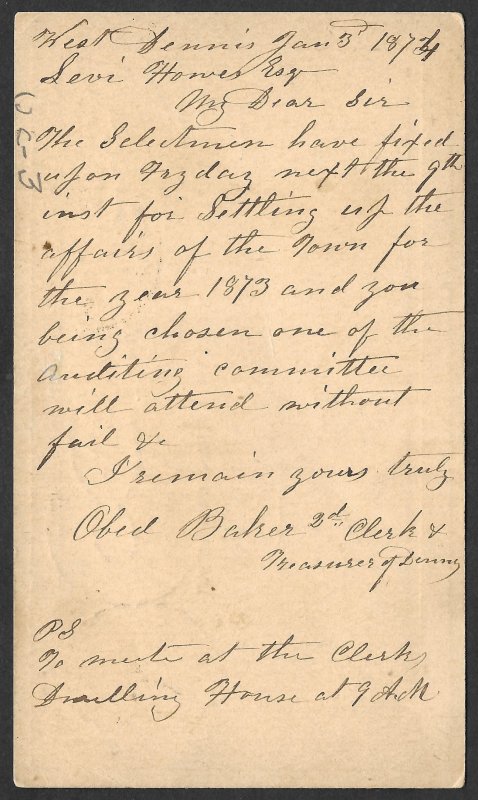 West Dennis Jan 3d 1874
Levi Howes Esq
My Dear Sir
The Selectmen have fixed
upon Fryday next the 9th
inst for Settling up the
affairs of the Town for
the year 1873 and you
being chosen one of the
auditing committee
will attend without
fail &c
I remain yours truly
Obed Baker 2d Clerk &
Treasurer of Dennis
PS
To meete at the Clerks
Dwelling House at 9 AM